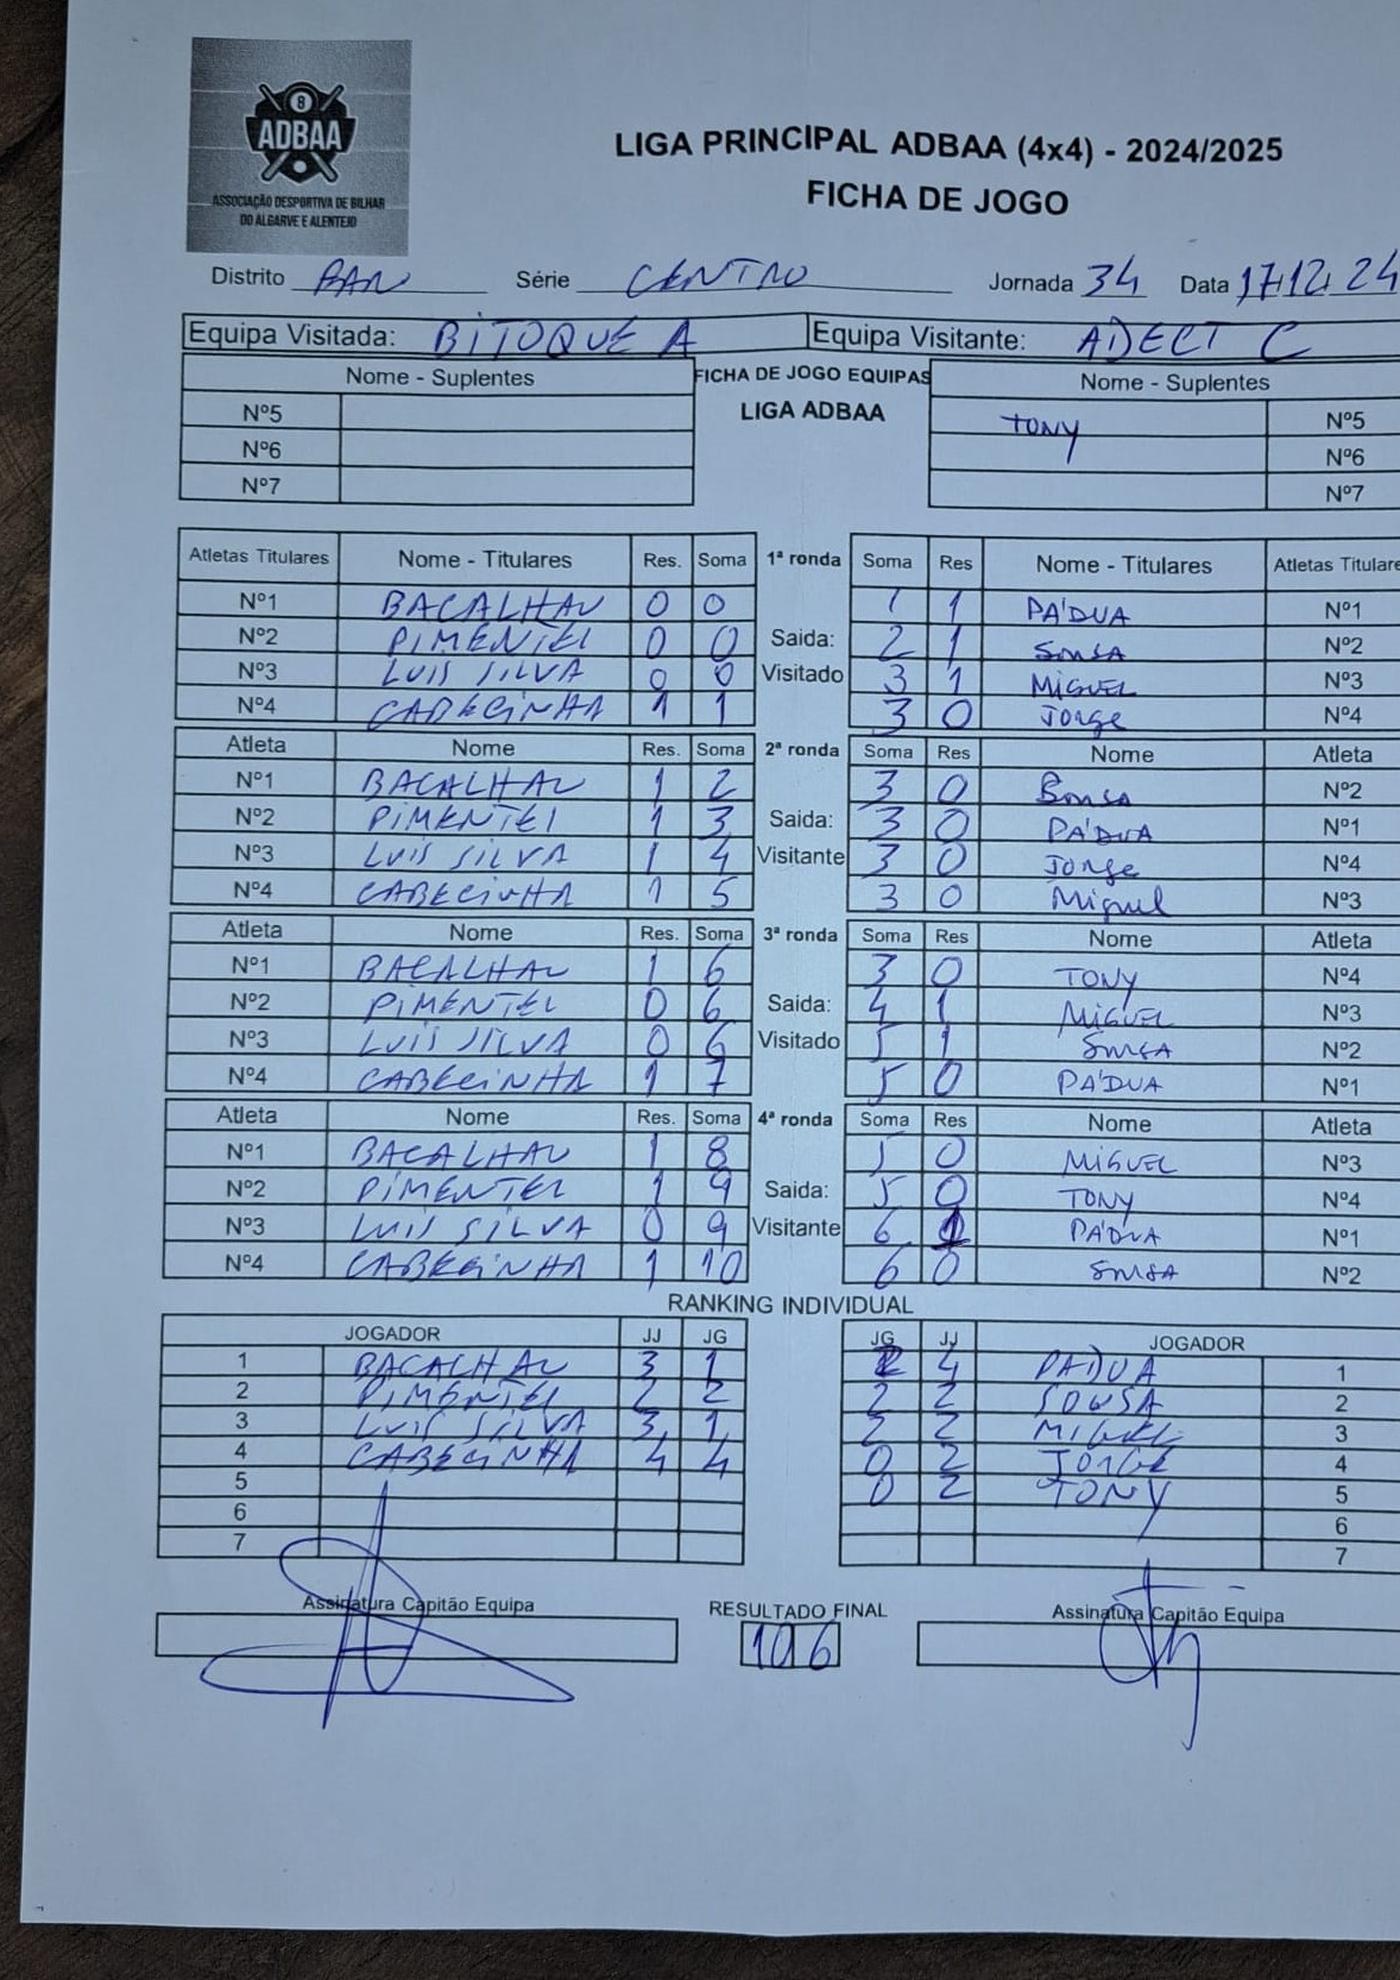 8
ADBAA
ASSOCIAÇÃO DESPORTIVA DE BILHAR
DO ALGARVE E ALENTEJO
LIGA PRINCIPAL ADBAA (4x4) - 2024/2025
FICHA DE JOGO
Distrito Série CENTRO Jornada 34 Data 17.12.24
Equipa Visitada: BITOQUE A Equipa Visitante: ADECT C
Nome - Suplentes FICHA DE JOGO EQUIPAS Nome - Suplentes
Nº5 LIGA ADBAA TONY Nº5
Nº6 Nº6
Nº7 Nº7
Atletas Titulares Nome - Titulares Res. Soma 1ª ronda Soma Res Nome - Titulares Atletas Titulare
Nº1 BACALHAU 0 0 1 1 PÁDUA Nº1
Nº2 PIMENTEL 0 0 Saida: 2 1 SOUSA Nº2
Nº3 LUIS SILVA 0 0 Visitado 3 1 MIGUEL Nº3
Nº4 CABECINHA 1 1 3 0 Jorge Nº4
Atleta Nome Res. Soma 2ª ronda Soma Res Nome Atleta
Nº1 BACALHAU 1 2 3 0 Sousa Nº2
Nº2 PIMENTEL 1 3 Saida: 3 0 PÁDUA Nº1
Nº3 LUIS SILVA 1 4 Visitante 3 0 Jorge Nº4
Nº4 CABECINHA 1 5 3 0 Miguel Nº3
Atleta Nome Res. Soma 3ª ronda Soma Res Nome Atleta
Nº1 BACALHAU 1 6 3 0 TONY Nº4
Nº2 PIMENTEL 0 6 Saida: 4 1 MIGUEL Nº3
Nº3 LUIS SILVA 0 6 Visitado 5 1 SOUSA Nº2
Nº4 CABECINHA 1 7 5 0 PÁDUA Nº1
Atleta Nome Res. Soma 4ª ronda Soma Res Nome Atleta
Nº1 BACALHAU 1 8 5 0 MIGUEL Nº3
Nº2 PIMENTEL 1 9 Saida: 5 0 TONY Nº4
Nº3 LUIS SILVA 0 9 Visitante 6 1 PÁDUA Nº1
Nº4 CABECINHA 1 10 6 0 SOUSA Nº2
RANKING INDIVIDUAL
JOGADOR JJ JG JG JJ JOGADOR
1 BACALHAU 3 1 4 PADUA 1
2 PIMENTEL 2 2 2 2 SOUSA 2
3 LUIS SILVA 3 1 2 2 MIGUEL 3
4 CABECINHA 4 4 0 2 JORGE 4
5 0 2 TONY 5
6 6
7 7
Assinatura Capitão Equipa RESULTADO FINAL Assinatura Capitão Equipa
10 6